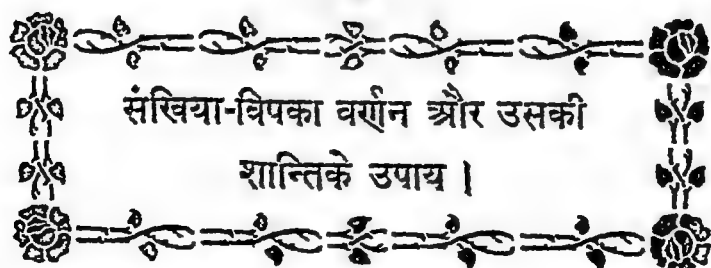 संखिया-विषका वर्णन और उसकी
शान्तिके उपाय ।